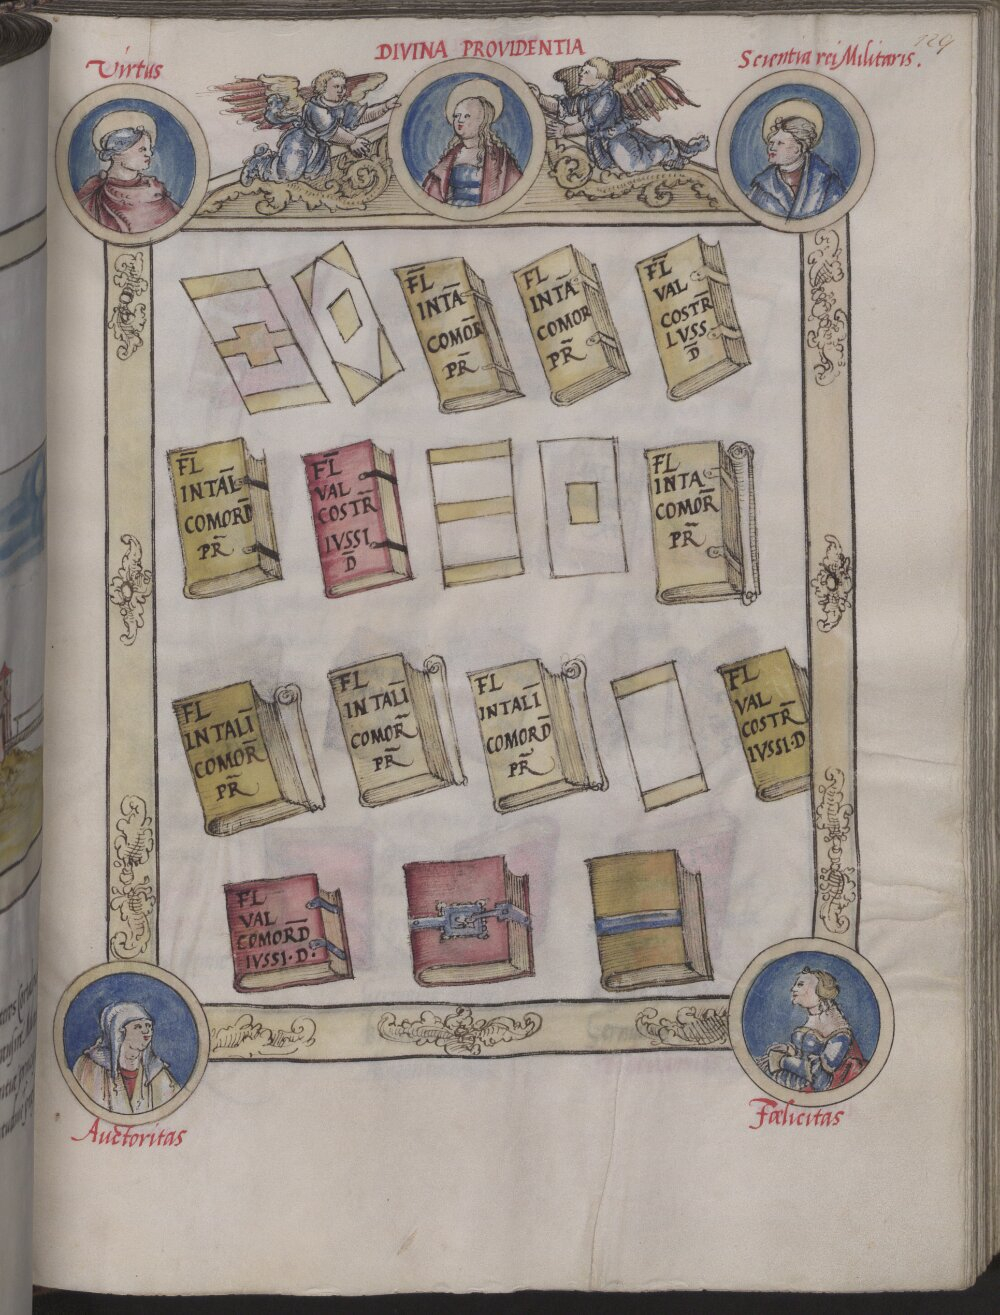 129
DIVINA PROVIDENTIA
Virtus
Scientia rei Militaris.
F̅L
INTA̅
COMOR̅
PR̅
FL
INTA̅
COMOR
PR̅
F̅L
VAL
COSTR
LVSS
D̅
F̅L
INTAL̅
COMORD
PR̅
F̅L
VAL
COSTR̅
IVSSI
D̅
F̅L
INTA̅
COMOR̅
PR̅
FL
INTALI̅
COMOR̅
PR̅
FL
INTALI̅
COMOR̅
PR̅
FL
INTALI̅
COMORD̅
PR̅
FL
VAL
COSTR̅
IVSSI·D
FL
VAL
COMORD̅
IVSSI·D·
Auctoritas
Fœlicitas